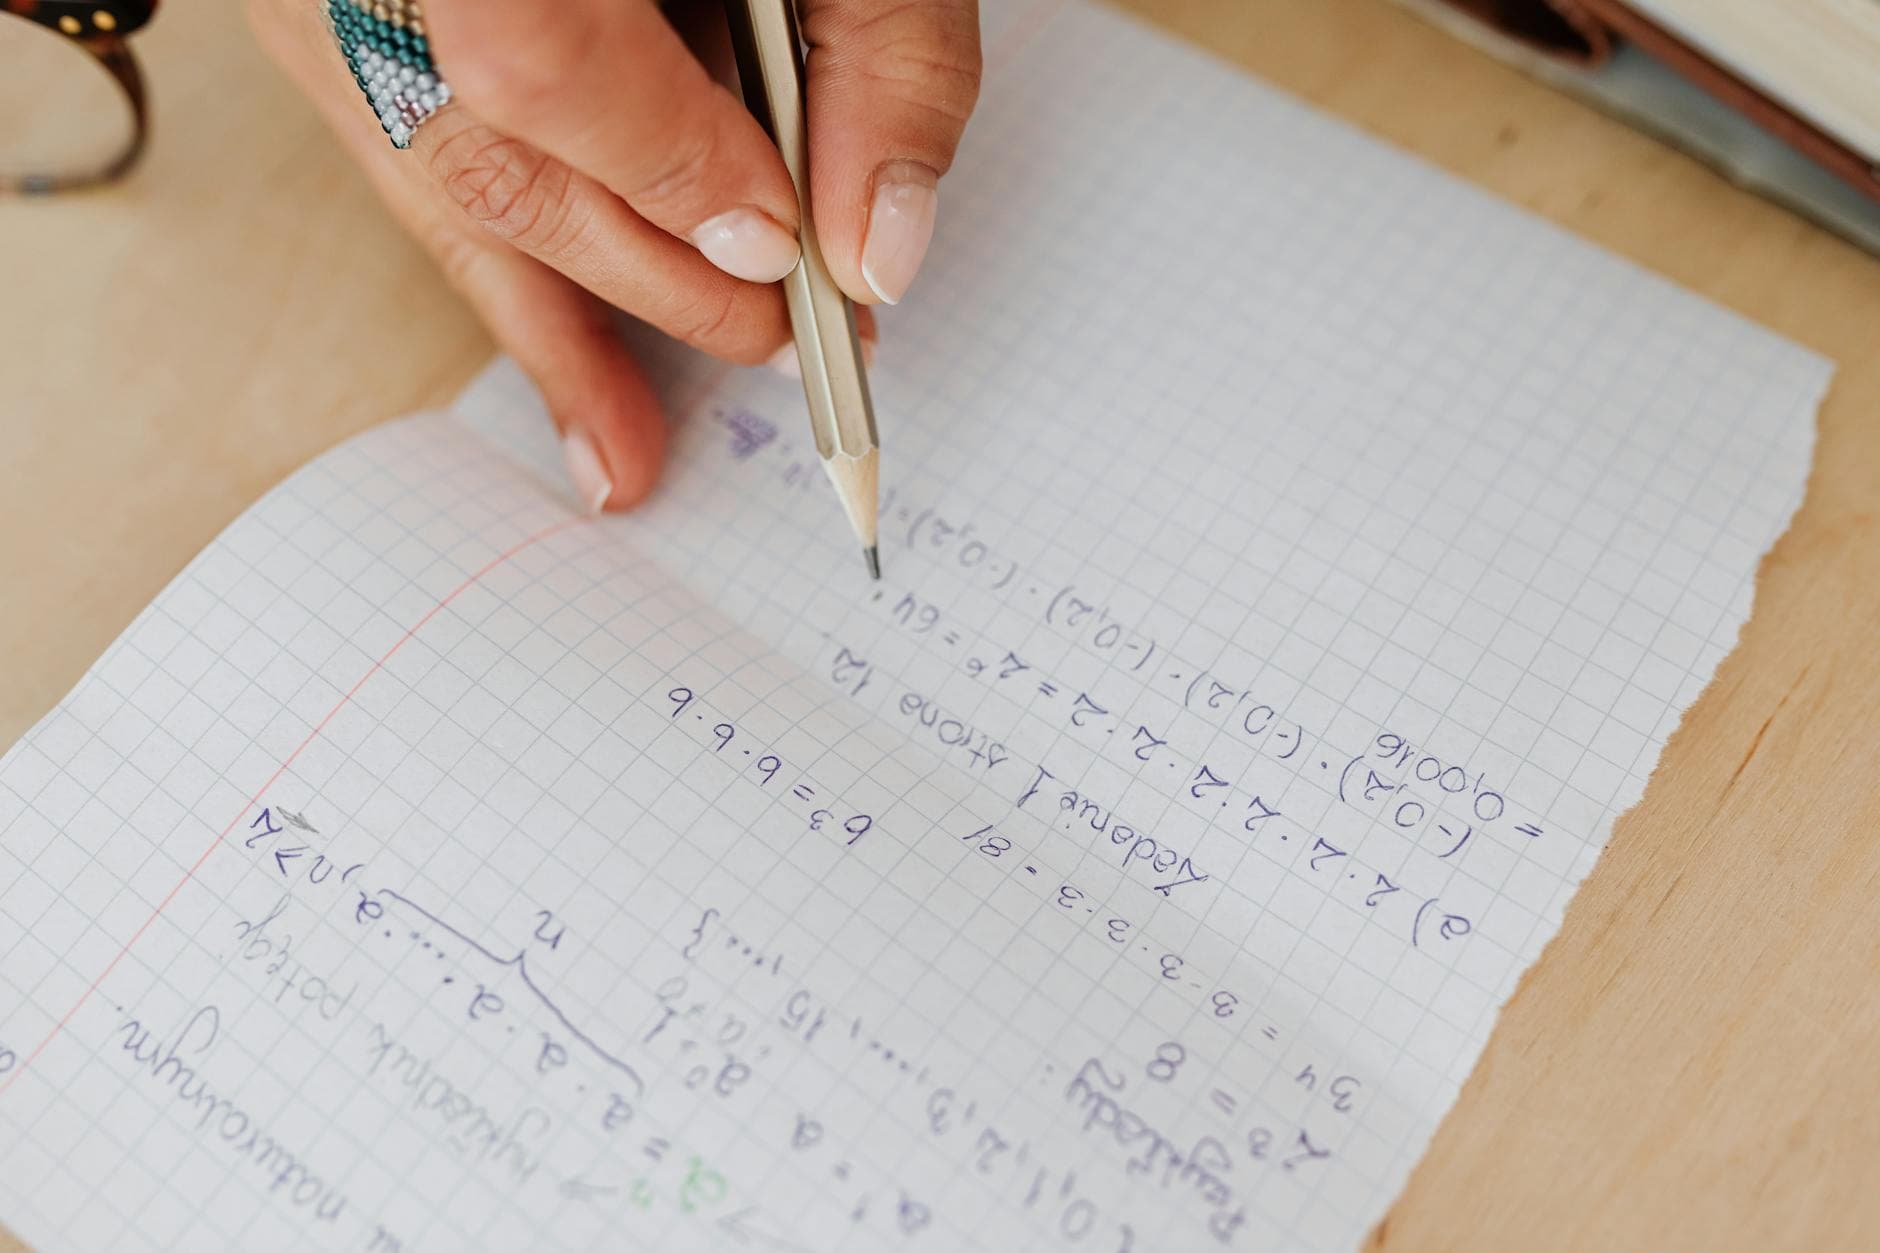 naturalnym.
→ wykładnik potęgi
→ aⁿ = a · a · a · .... · a, n ≥ 2
n
a¹ = a a⁰ = 1
, a ≠ 0
{0, 1, 2, 3, ...., 15, ....}
Przykłady:
2³ = 8
3⁴ = 3 · 3 · 3 · 3 = 81 b³ = b · b · b
Zadanie 1 strona 12.
a) 2 · 2 · 2 · 2 · 2 · 2 = 2⁶ = 64.
(-0,2) · (-0,2) · (-0,2) · (-0,2) =
= 0,0016